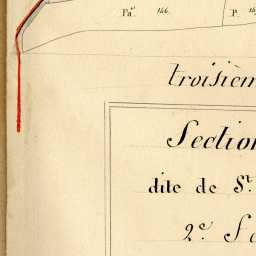 Pa. 146. P.
troisièm
Section
dite de St.
2e. Fe